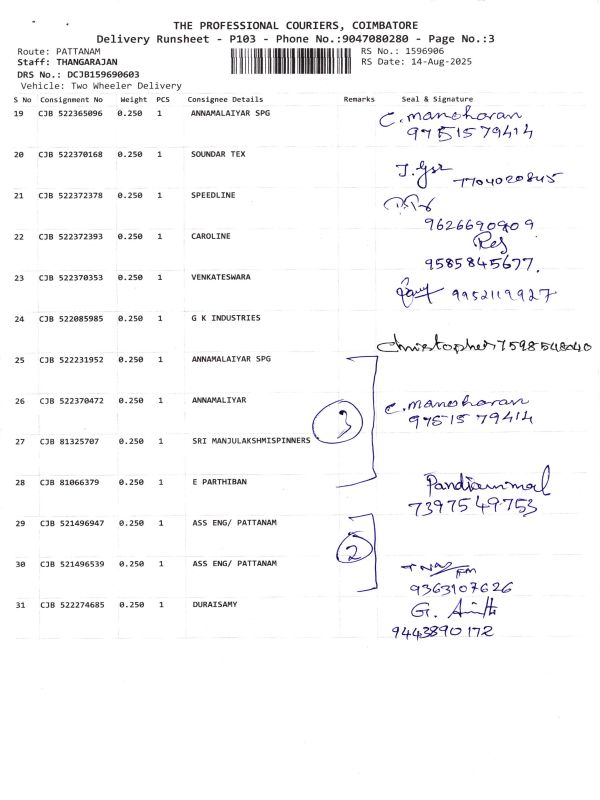 THE PROFESSIONAL COURIERS, COIMBATORE
Delivery Runsheet - P103 - Phone No.:9047080280 - Page No.:3
Route: PATTANAM RS No.: 1596906
Staff: THANGARAJAN RS Date: 14-Aug-2025
DRS No.: DCJB159690603
Vehicle: Two Wheeler Delivery
S No Consignment No Weight PCS Consignee Details Remarks Seal & Signature
19 CJB 522365096 0.250 1 ANNAMALAIYAR SPG C. manoharan
9751579414
20 CJB 522370168 0.250 1 SOUNDAR TEX
7704020845
21 CJB 522372378 0.250 1 SPEEDLINE
9626690909
22 CJB 522372393 0.250 1 CAROLINE
9585845677.
23 CJB 522370353 0.250 1 VENKATESWARA
9952119927
24 CJB 522085985 0.250 1 G K INDUSTRIES
Christopher 7598548040
25 CJB 522231952 0.250 1 ANNAMALAIYAR SPG
26 CJB 522370472 0.250 1 ANNAMALIYAR 3 C. manoharan
9751579414
27 CJB 81325707 0.250 1 SRI MANJULAKSHMISPINNERS
28 CJB 81066379 0.250 1 E PARTHIBAN Pandiammal
7397549753
29 CJB 521496947 0.250 1 ASS ENG/ PATTANAM
2
30 CJB 521496539 0.250 1 ASS ENG/ PATTANAM
9363107626
31 CJB 522274685 0.250 1 DURAISAMY G.
9443890172